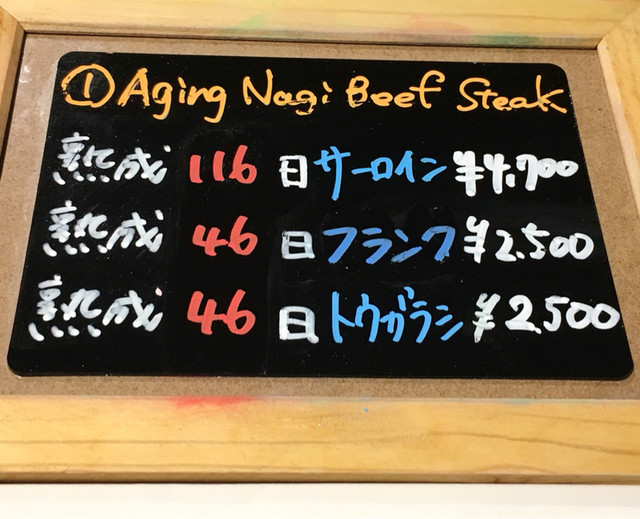 ①Aging Nagi Beef Steak
熟成 116 日 サーロイン ¥4,700
熟成 46 日 フランク ¥2,500
熟成 46 日 トウガラシ ¥2,500